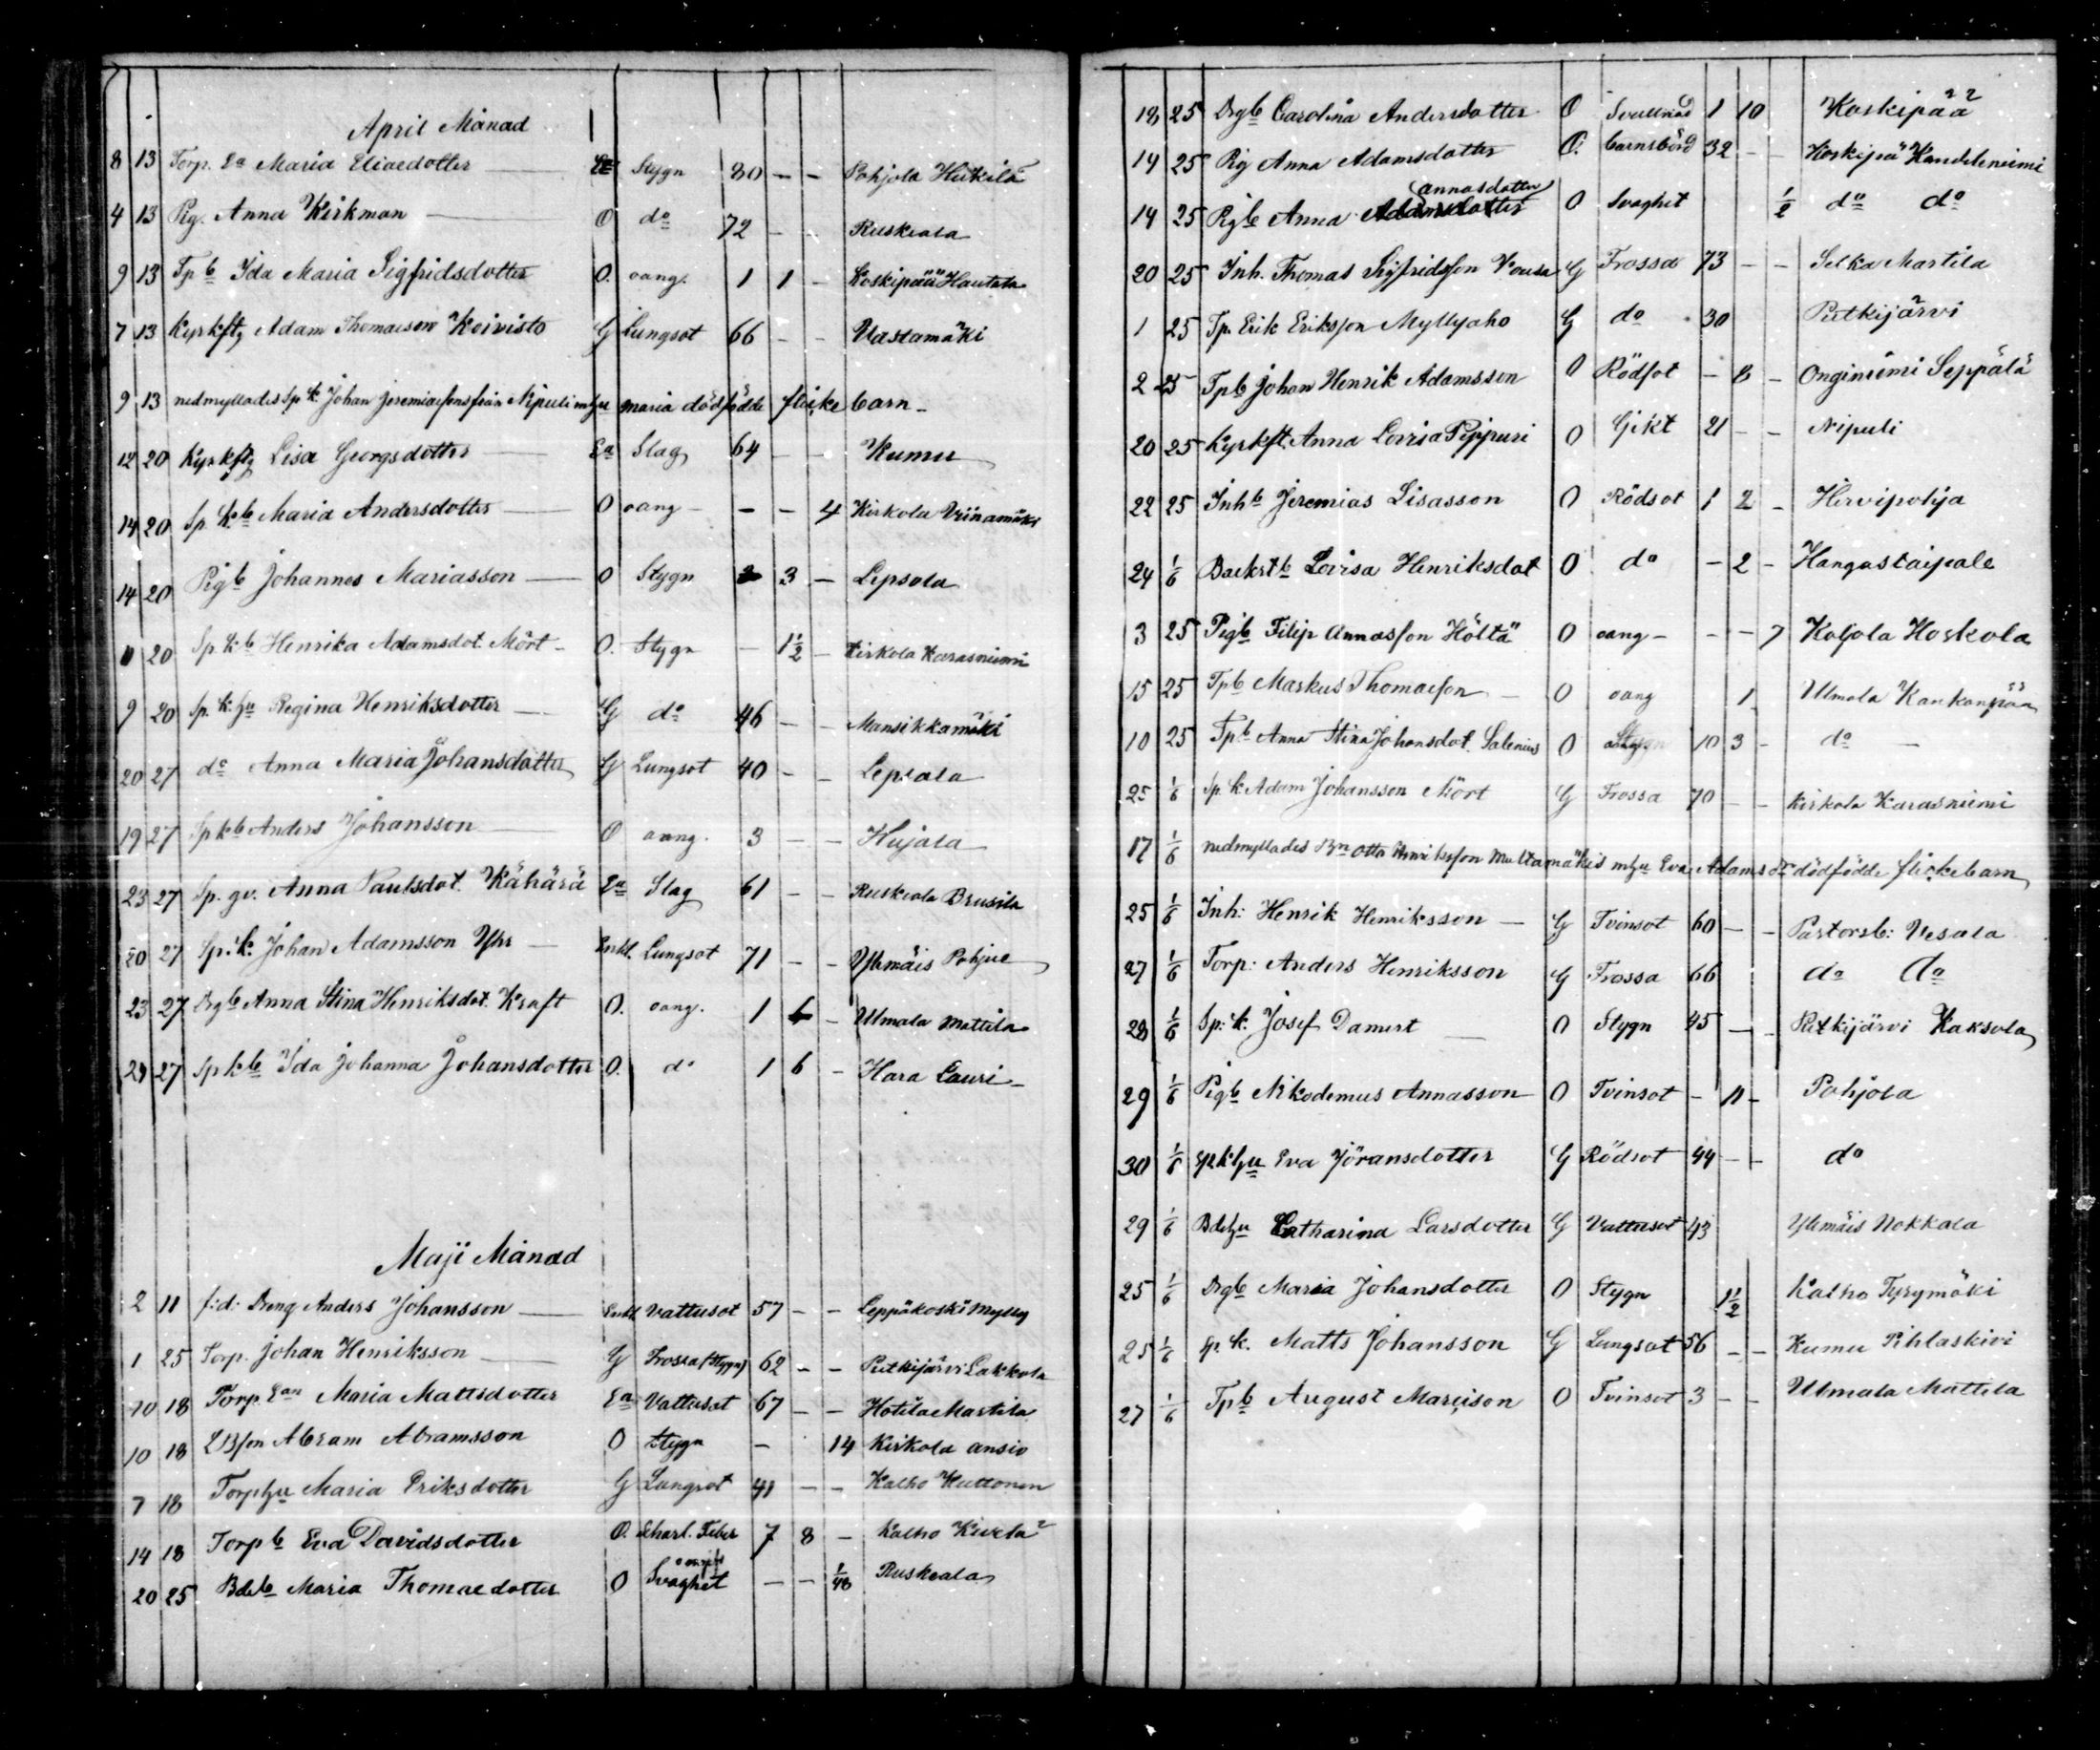 April Månad
8 13 Torp. Ea Maria Eliaedotter — Ea Stygn 80 – – Pohjola Heikilä
4 13 Pig. Anna Kirkman — O do 72 – – Ruskeala
9 13 Tp b Ida Maria Sigfridsdotter O. oang. 1 1 – Koskipää Hautala
7 13 Kyrkftg Adam Thomasson Koivisto G Lungsot 66 – – Vlastamäki
9 13 nedmyllades Sp k Johan Jeremiaesons från Nipuli mhu Maria dödfödde flicke barn –
12 20 Kyrkftg Lisa Georgsdotter — Ea Slag 64 – – Kumu
14 20 Sp. k b Maria Andersdotter — O oang – – – 4 Kirkola Veinamäki
14 20 Pig b Johannes Mariasson — O Stygn 3 – Lepsala
11 20 Sp. k b Henrika Adamsdot. Mört – O. Stygn – 1½ – Kirkola Karasniemi
9 20 Sp. k. hu Regina Henriksdotter — G do 46 – – Mansikkamäki
20 27 do Anna Maria Johansdotter G Lungsot 40 – – Lepsala
19 27 Sp k b Anders Johansson — O oang. 3 – – Hujala
23 27 Sp. gv. Anna Paulsdot. Kähärä Ea Slag 61 – – Ruskeala Brusila
20 27 Sp: k. Johan Adamsson Yhr — Enkl. Lungsot 71 – – Ylimäis Pohjue
23 27 Drg b Anna Stina Henriksdot. Kraft O. oang. 1 6 – Ulmala Mattila
24 27 Sp k b Ida Johanna Johansdotter O. do 1 6 – Hara Lauri –
Maji Månad
2 11 f:d: Dreng Anders Johansson — Enkl Vattusot 57 – – Leppäkoski Mylly
1 25 Torp. Johan Henriksson — G Frossa (Stygn) 62 – – Putkijärvi Lakkola
10 18 Torp Ean Maria Mattsdotter Ea Vattusot 67 – – Hotila Martila
10 18 Abram Abramsson O Stygn – 14 Kirkola ansio
7 18 Torphu Maria Eriksdotter G Lungsot 41 – – Kalho Huttonen
14 18 Torp b Eva Davidsdotter O. Scharl. Feber 7 8 – Kalho Kivelä
20 25 Bde b Maria Thomaedotter O Svaghet – – 1/48 Ruskeala
18 25 Drg b Carolina Andersdotter O Svullnad 1 10 Koskipää
14 25 Pig Anna Adamsdotter O. barnsbörd 32 – – Koskipää Kandeleniemi
14 25 Pig b Anna Adamsdotter annasdotter O Svaghet ½ do do
20 25 Inh. Thomas Sigfridsson Vousa G Frossa 73 – – Selka Martila
1 25 Tp. Erik Eriksson Myllyaho G do 30 Putkijärvi
2 25 Tp b Johan Henrik Adamsson O Rödsot – 8 – Onginiemi Seppälä
20 25 Kyrkft. Anna Lovisa Pippuri O Gikt 21 – – Nipuli
22 25 Inh b Jeremias Lisasson O Rödsot 1 2 – Hirvipohja
24 1/6 Backst b Lovisa Henriksdot O do – 2 – Hangastaipale
3 25 Pig b Filip Annasson Höltä O oang – – – 7 Koljola Hoskola
15 25 Tp b Markus Thomasson – O oang 1 Ulmala Kankanpää
10 25 Tp b Anna Stina Johansdot. Salenius O Stygn 10 3 – do –
25 1/6 Sp. k Adam Johansson Mört G Frossa 70 – – Kirkola Karasniemi
17 1/6 nedmyllades Bn Otto Henriksson Multamäkis mhu Eva Adams dr dödfödde flickebarn
25 1/6 Inh: Henrik Henriksson — G Tvinsot 60 – – Pastorsb: Vesala
27 1/6 Torp: Anders Henriksson G Frossa 66 do do
28 1/6 Sp: k. Josef Damert O Stygn 45 – – Putkijärvi Kaksola
29 1/6 Pig b Nikodemus Annasson O Tvinsot – 11 – Pohjola
30 1/6 Spk hu Eva Jöransdotter G Rödsot 44 – – do
29 1/6 Bdehu Catharina Larsdotter G Vattusot 43 Ylimäis Nokkala
25 1/6 Drg b Maria Johansdotter O Stygn 1½ Kalho Tyrymäki
25 1/6 Sp. k. Matts Johansson G Lungsot 56 – – Kumu Pihlaskivi
27 1/6 Tp b August Mareison O Tvinsot 3 – – Ulmala Mattila